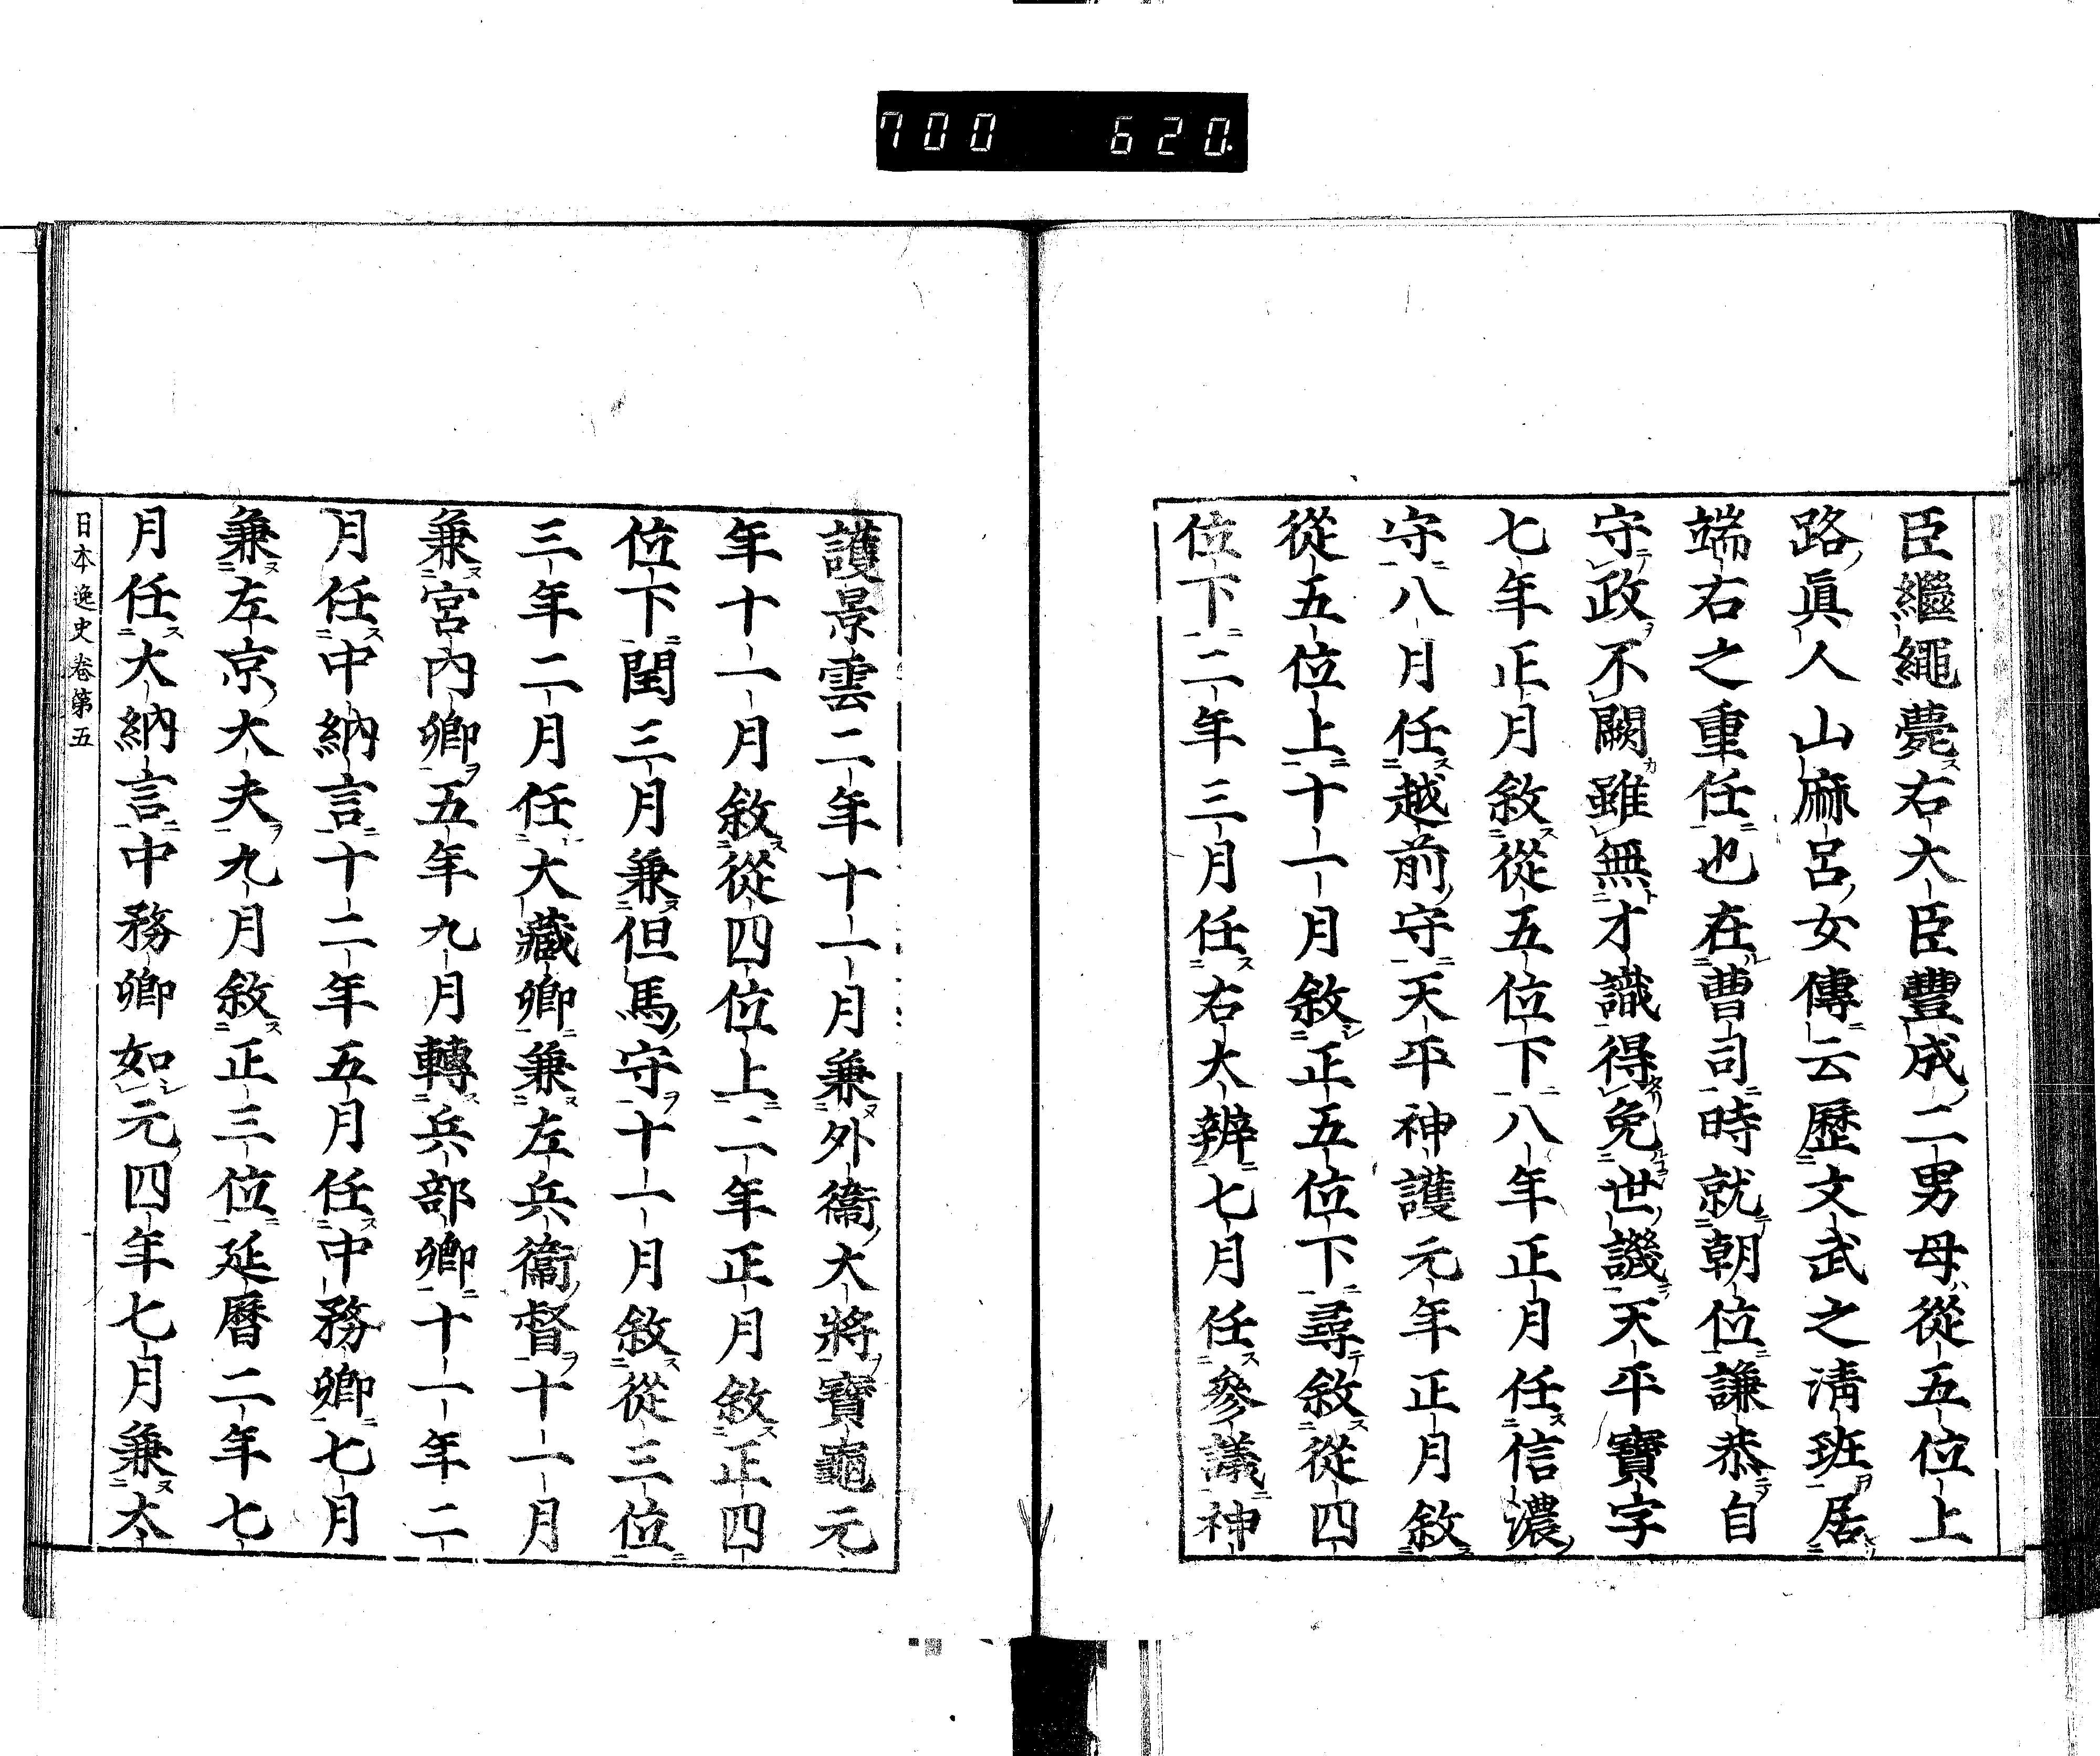 700 620.
臣繼繩薨右大臣豐成二男母從五位上
路眞人山麻呂女傳云歷文武之淸班居
端右之重任也在曹司時就朝位謙恭自
守政不闕雖無才識得免世譏天平寶字
七年正月敘從五位下八年正月任信濃
守八月任越前守天平神護元年正月敘
從五位上十一月敘正五位下尋敘從四
位下二年三月任右大辨七月任參議神
護景雲二年十一月兼外衞大將寶龜元
年十一月敘從四位上二年正月敘正四
位下閏三月兼但馬守十一月敘從三位
三年二月任大藏卿兼左兵衞督十一月
兼宮內卿五年九月轉兵部卿十一年二
月任中納言十二年五月任中務卿七月
兼左京大夫九月敘正三位延曆二年七
月任大納言中務卿如元四年七月兼太
日本逸史卷第五